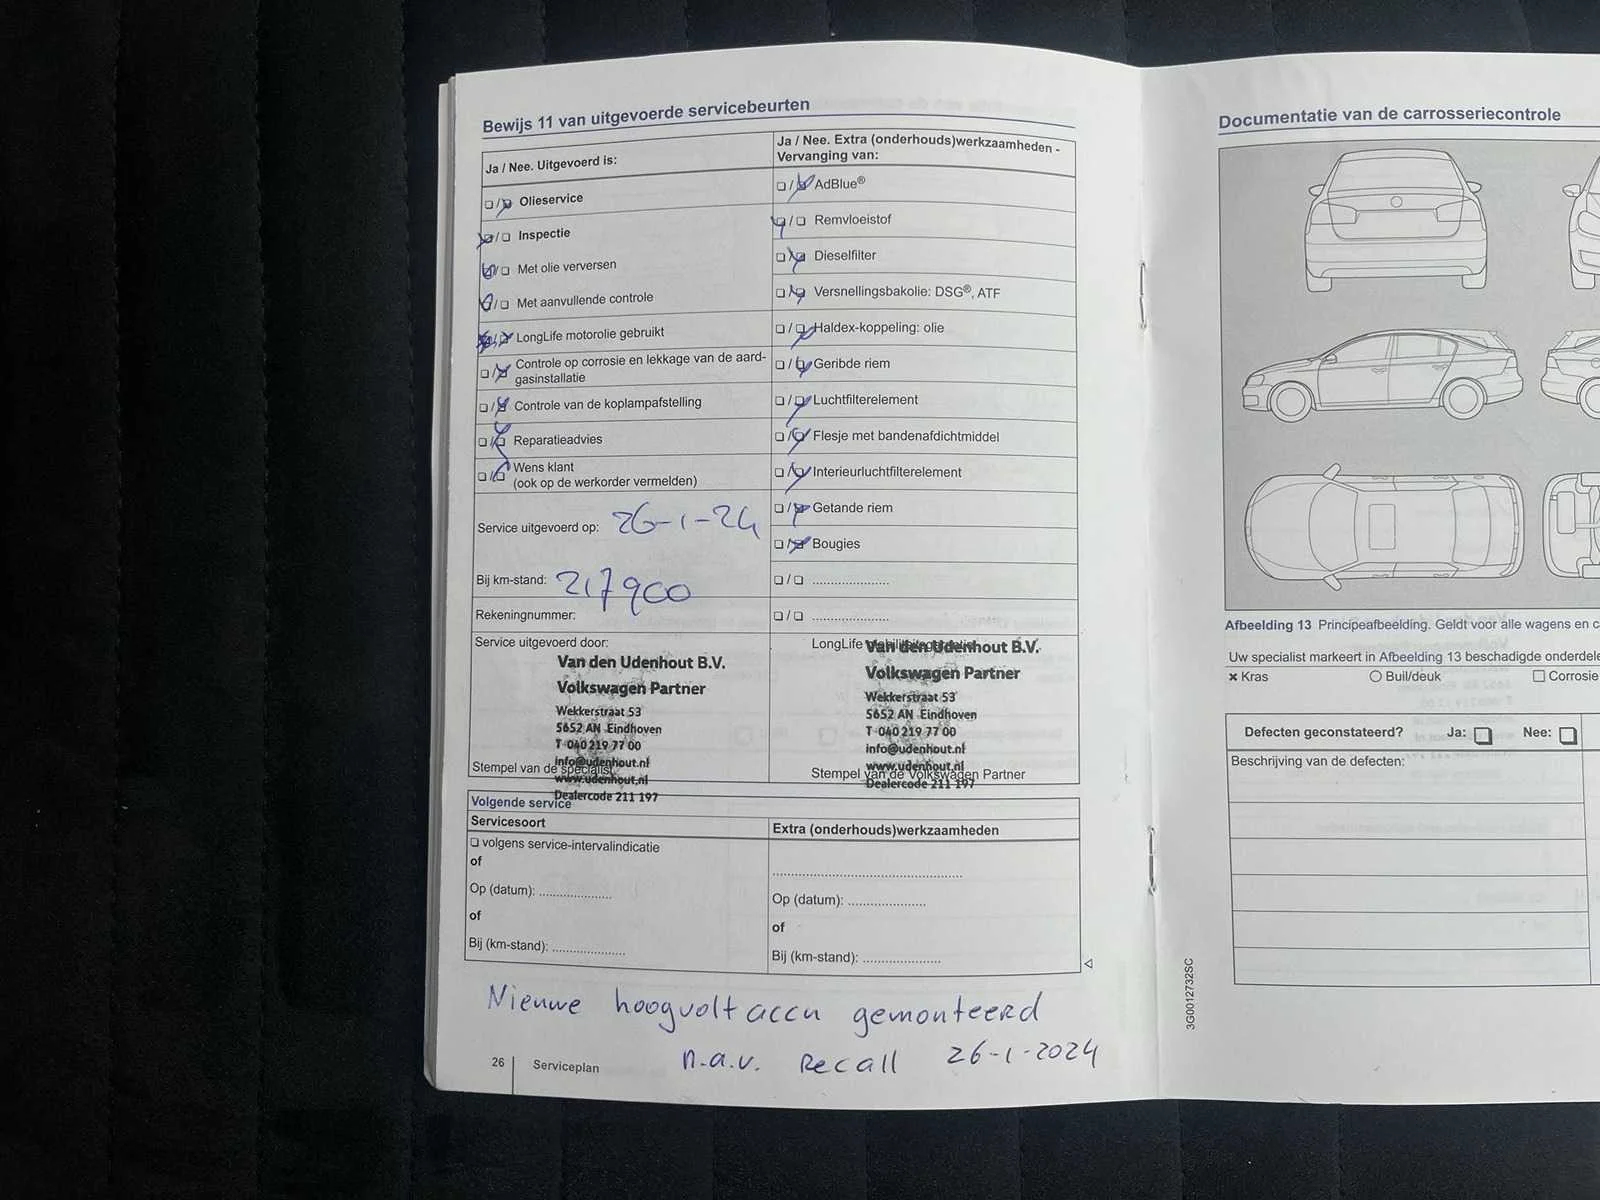 Bewijs 11 van uitgevoerde servicebeurten
Ja / Nee. Uitgevoerd is:
Olieservice
Inspectie
Met olie verversen
Met aanvullende controle
LongLife motorolie gebruikt
Controle op corrosie en lekkage van de aard-
gasinstallatie
Controle van de koplampafstelling
Reparatieadvies
Wens klant
(ook op de werkorder vermelden)
Service uitgevoerd op: 26-1-24
Bij km-stand: 217900
Rekeningnummer:
Service uitgevoerd door:
Van den Udenhout B.V.
Volkswagen Partner
Wekkerstraat 53
5652 AN Eindhoven
T 040 219 77 00
info@udenhout.nl
Stempel van de specialist
www.udenhout.nl
Dealercode 211 197
Ja / Nee. Extra (onderhouds)werkzaamheden -
Vervanging van:
AdBlue®
Remvloeistof
Dieselfilter
Versnellingsbakolie: DSG®, ATF
Haldex-koppeling: olie
Geribde riem
Luchtfilterelement
Flesje met bandenafdichtmiddel
Interieurluchtfilterelement
Getande riem
Bougies
LongLife
Van den Udenhout B.V.
Volkswagen Partner
Wekkerstraat 53
5652 AN Eindhoven
T 040 219 77 00
info@udenhout.nl
www.udenhout.nl
Stempel van de Volkswagen Partner
Dealercode 211 197
Volgende service
Servicesoort
volgens service-intervalindicatie
of
Op (datum): ....................
of
Bij (km-stand): ....................
Extra (onderhouds)werkzaamheden
Op (datum): ....................
of
Bij (km-stand): ....................
Nieuwe hoogvolt accu gemonteerd
n.a.v. Recall 26-1-2024
26 Serviceplan
Documentatie van de carrosseriecontrole
Afbeelding 13 Principeafbeelding. Geldt voor alle wagens en
Uw specialist markeert in Afbeelding 13 beschadigde
Kras Buil/deuk Corrosie
Defecten geconstateerd? Ja: Nee:
Beschrijving van de defecten:
3G0012732SC